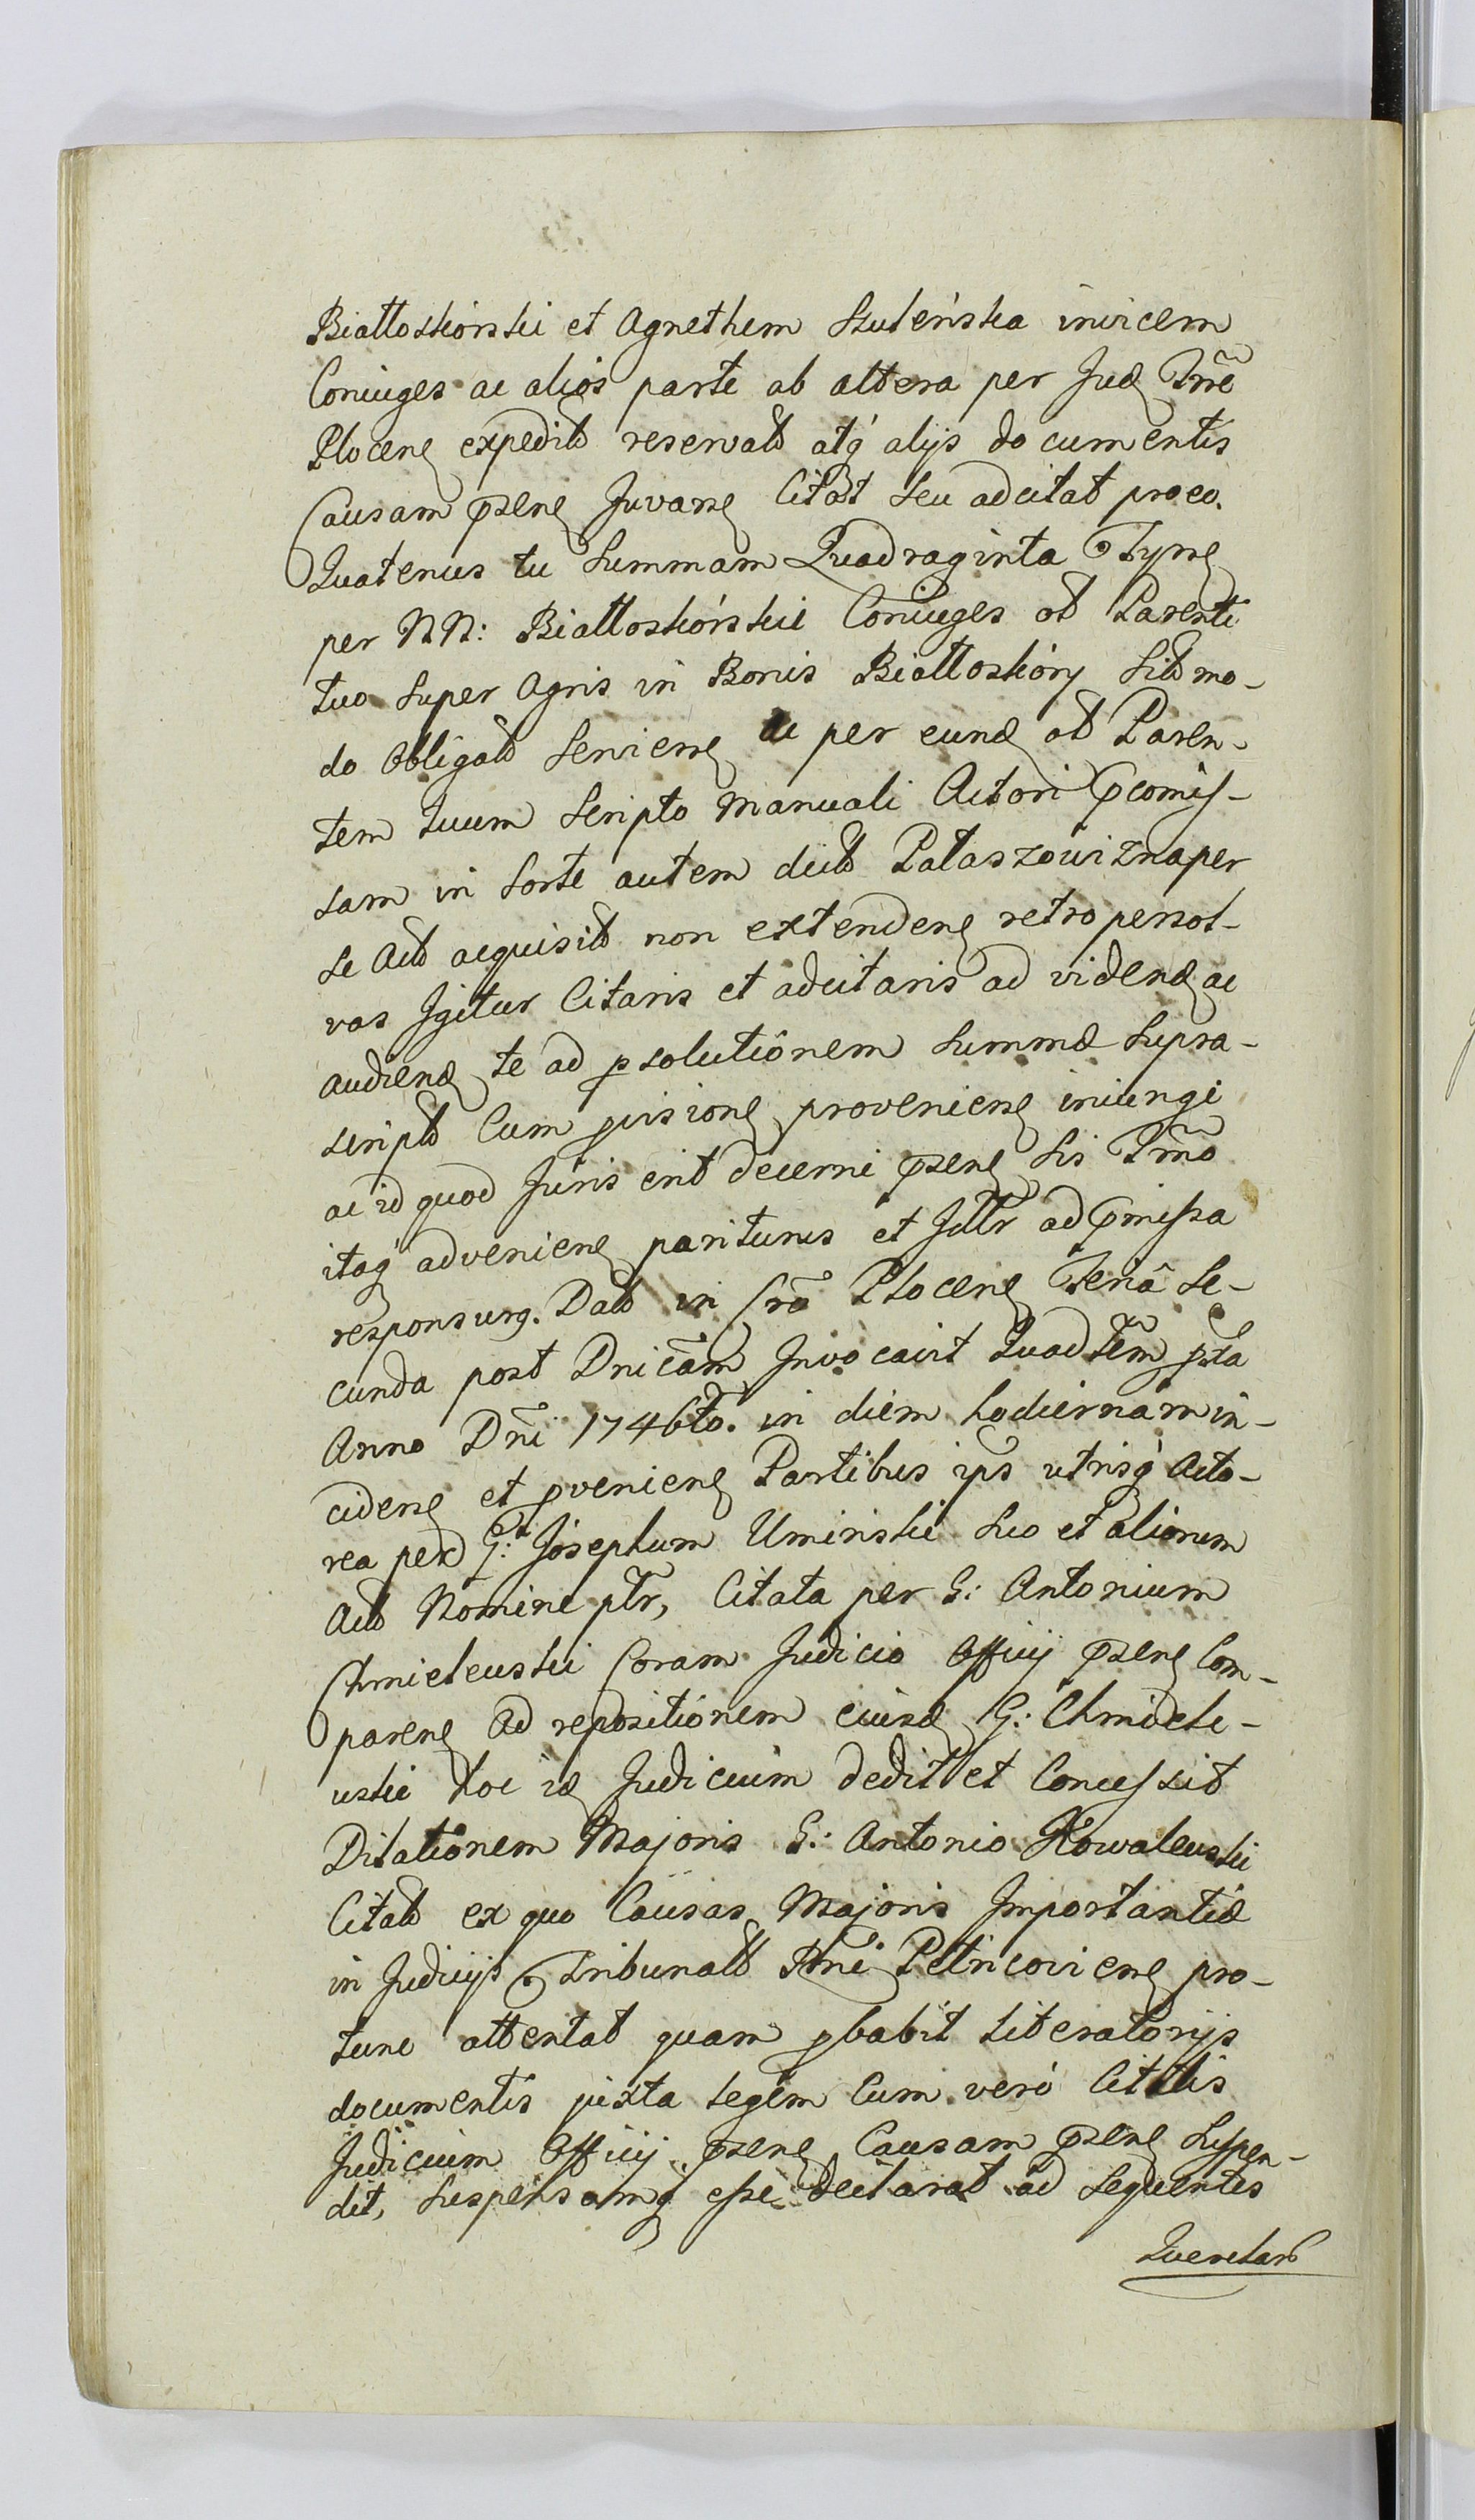 Białłoskórski et Agnethem Skuleńska invicem
Coniuges ac alios parte ab altera per Jud Trre
Plocen expedit reservat atq alijs documentis
Causam pñsen Juvan Citat seu adcitat pro eo.
Quatenus tu Summam Quadraginta Tymp
per NN: Białłoskórskie Coniuges ab Parente
tuo Super Agris in Bonis Białłoskóry Sit mo-
do Obligat Servien ac per eund ab Paren-
tem tuum Scripto Manuali Actori Promis-
sam in Sorte autem dict Pałaszowizna per
se Act acquisit non extenden retro persol-
vas Igitur Citaris et adcitaris ad videnд ac
audiend te ad psolutionem Summæ Supra-
script Cum provision provenien iniungi
ac id quod Juris erit decerni pñsen Sis Trmo
itaq advenien pariturus et Jdltr ad præmissa
responsurq. Dat in Cro Plocen Feria Se-
cunda post Dnicam Invocavit Quadtem pxta
Anno Dni 1746to. in diem hodiernam in-
ciden et pvenien Partibus ips utrisq Acto-
rea per G: Josephum Uminski Suo et aliorum
Act Nomine ptr, Citata per G: Antonium
Chmielewski Coram Judicio Officij pñsen Com-
paren Ad repositionem eiusd G: Chmiele-
wski hoc id Judicium dedit et Concessit
Dilationem Majoris G: Antonio Kowalewski
Citat ex quo Causas Majoris Importantiæ
in Judicijs Tribunalt Rni Petricovien pro-
tunc attentat quam pbabit literatorijs
documentis juxta legem Cum vero Citatis
Judicium Officij pñsen Causam pñsen Suspen-
dit, Suspensamq esse declarat ad Sequentes
Querelar